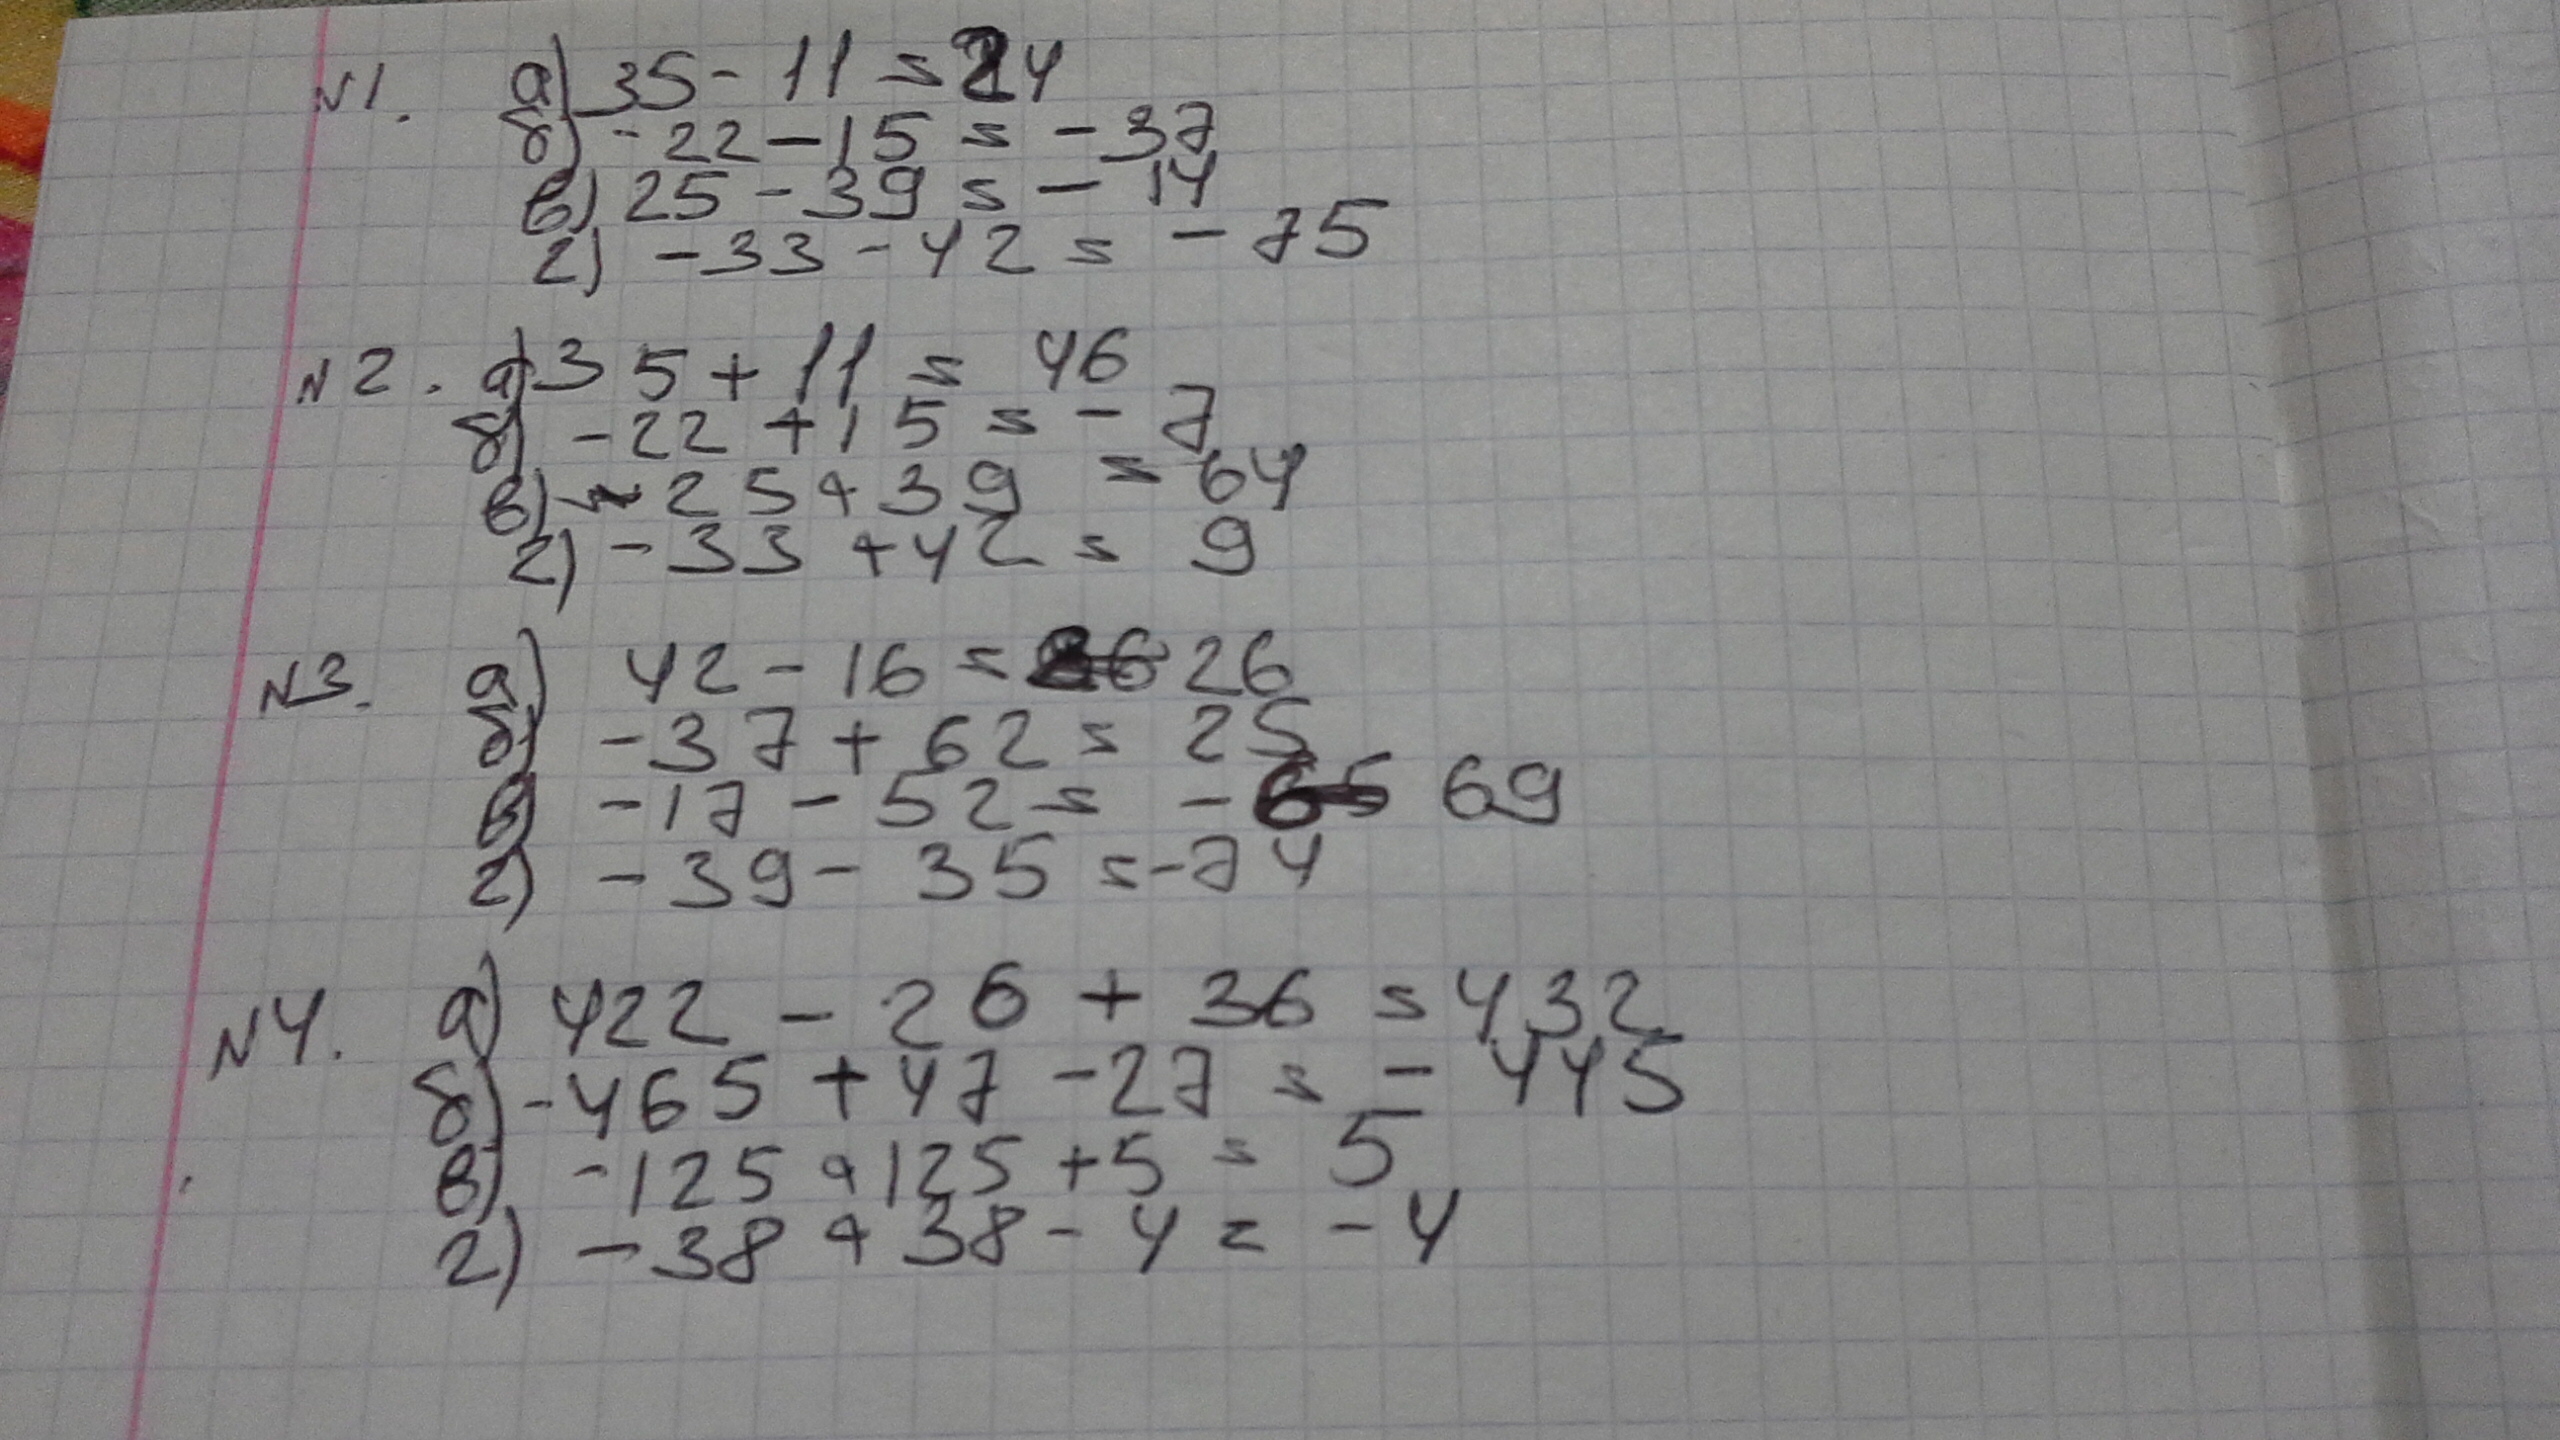 N1. а) 35 - 11 = 24
б) - 22 - 15 = - 37
в) 25 - 39 = - 14
г) - 33 - 42 = - 75
N2. а) 35 + 11 = 46
б) - 22 + 15 = - 7
в) 25 + 39 = 64
г) - 33 + 42 = 9
N3. а) 42 - 16 = 26
б) - 37 + 62 = 25
в) - 17 - 52 = - 69
г) - 39 - 35 = - 74
N4. а) 422 - 26 + 36 = 432
б) - 465 + 47 - 27 = - 445
в) - 125 + 125 + 5 = 5
г) - 38 + 38 - 4 = - 4